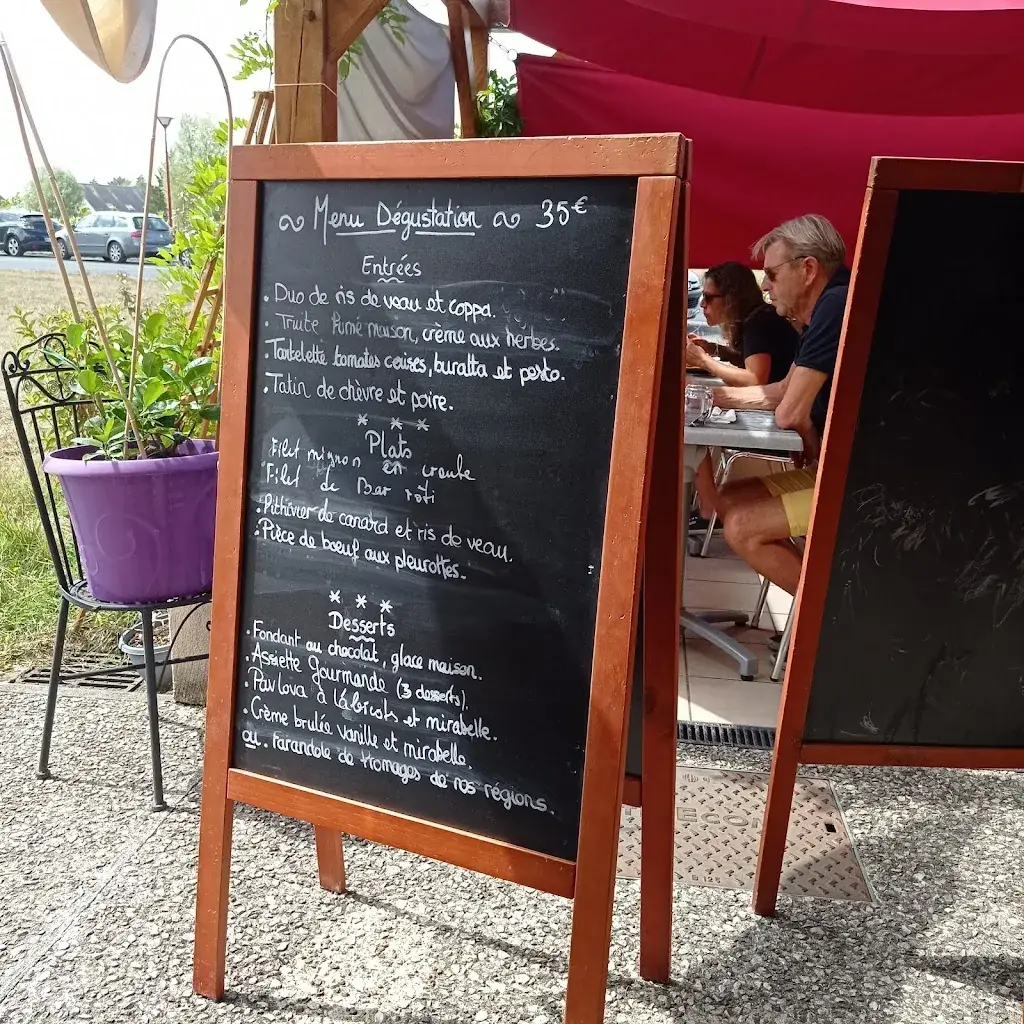 Menu Dégustation 35€
Entrées
. Duo de ris de veau et coppa.
. Truite fumé maison, crème aux herbes.
. Tartelette tomates cerises, buratta et pesto.
. Tatin de chèvre et poire.
* * *
Plats
. Filet mignon en croute
. Filet de Bar rôti
. Pithivier de canard et ris de veau.
. Pièce de boeuf aux pleurottes.
* * *
Desserts
. Fondant au chocolat, glace maison.
. Assiette gourmande (3 desserts).
. Pavlova à l'abricots et mirabelle.
. Crème brulée vanille et mirabelle.
ou. Farandole de fromages de nos régions.